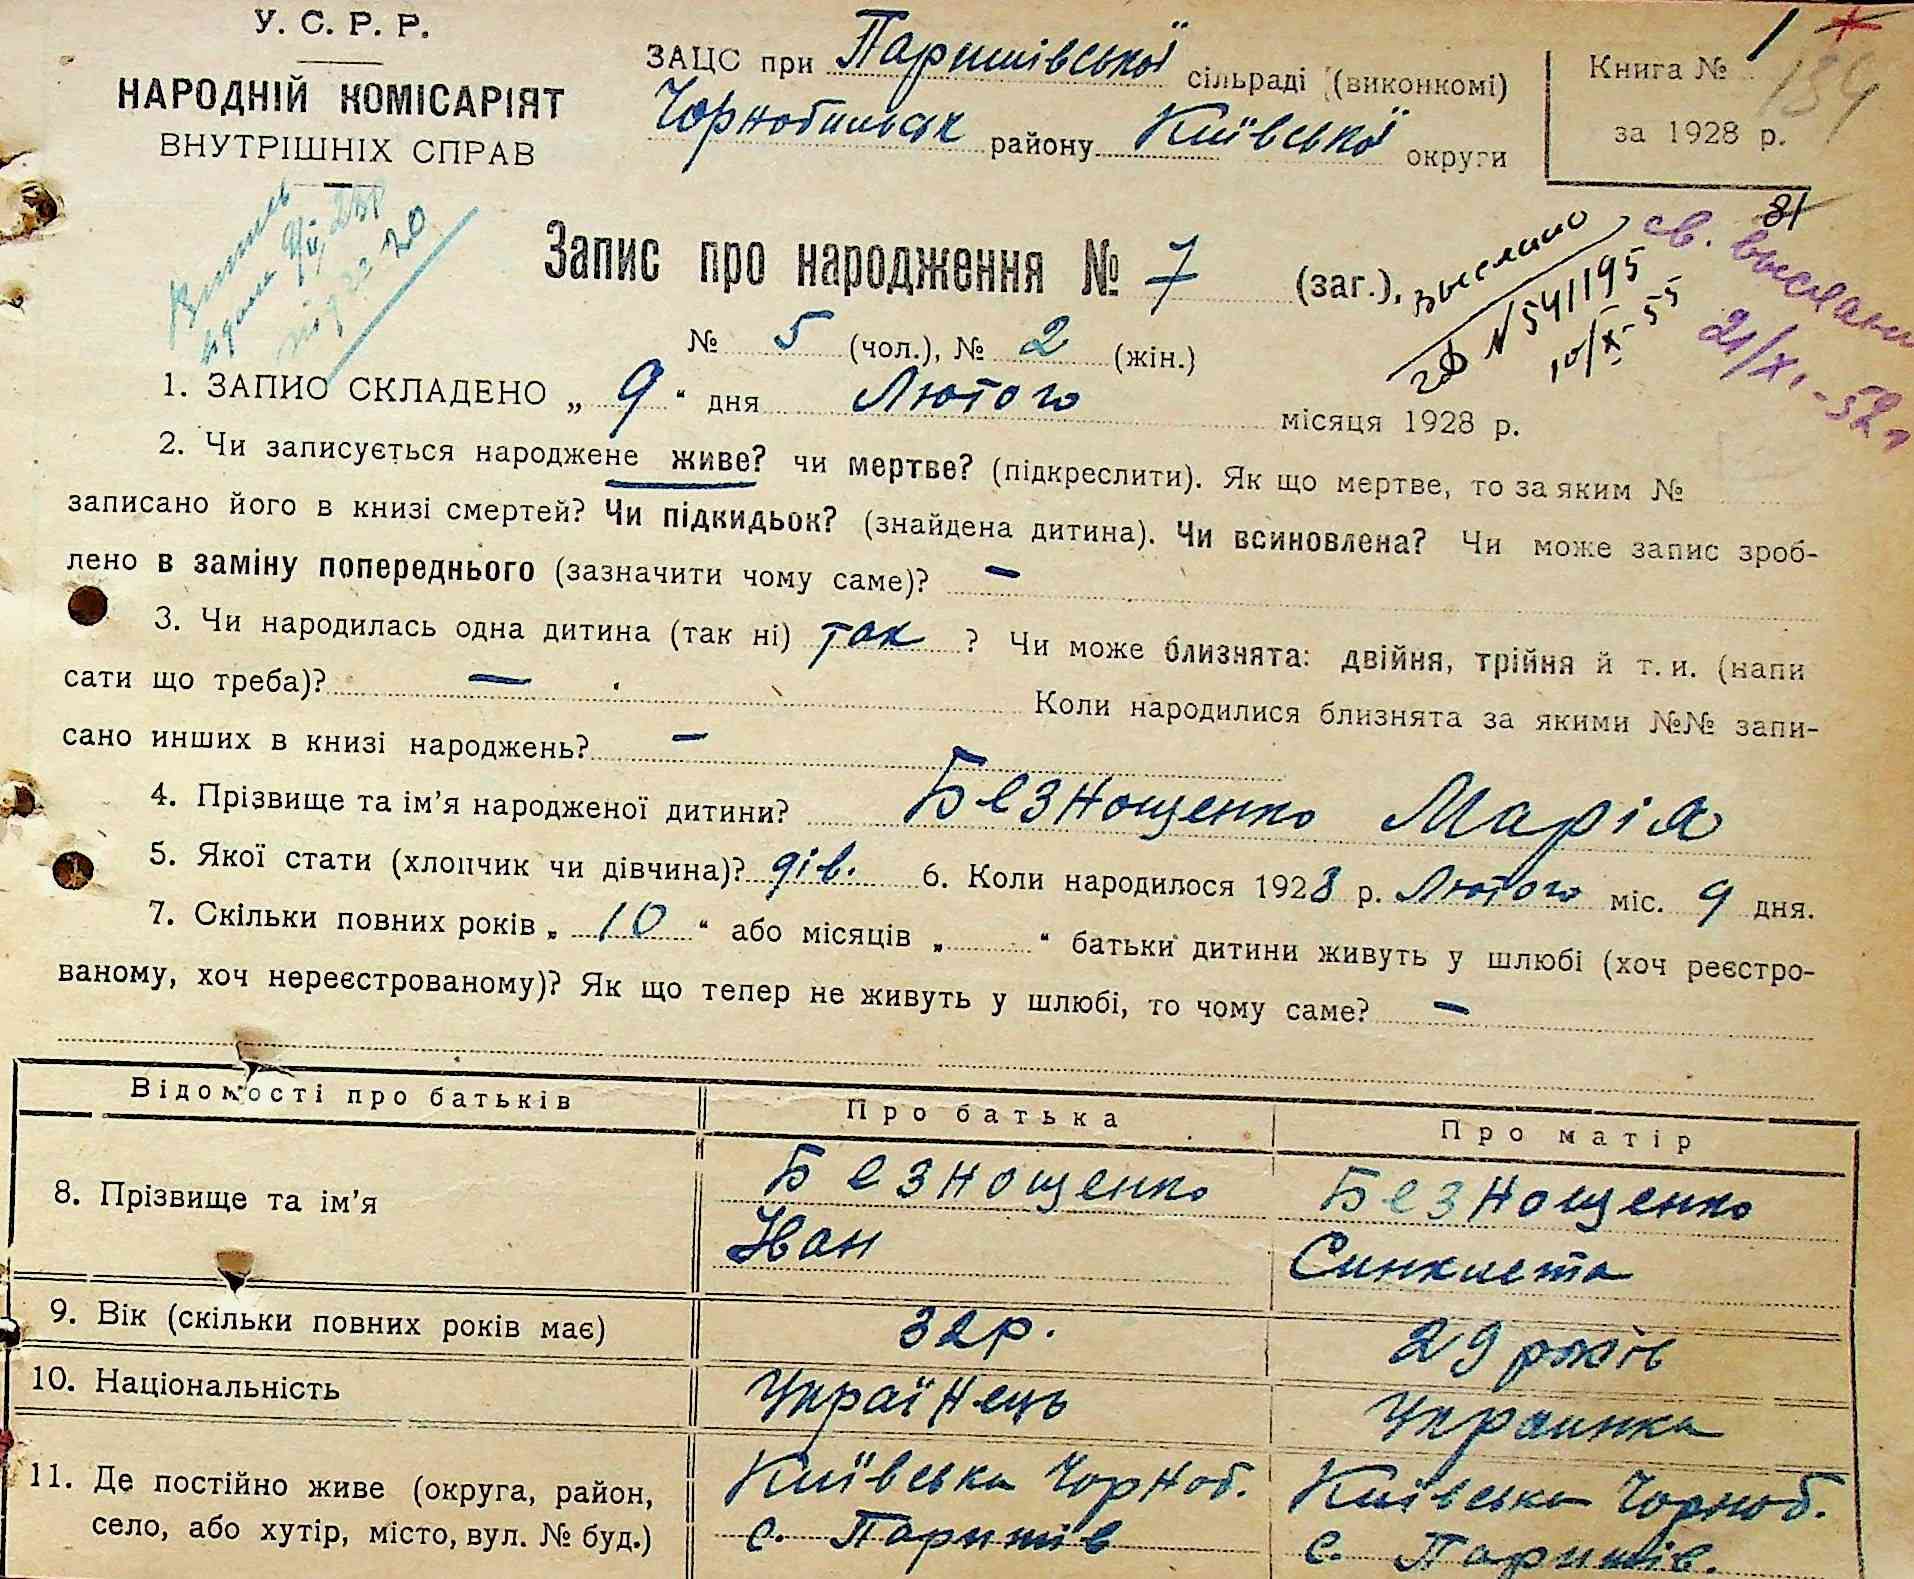 У. С. Р. Р.
НАРОДНІЙ КОМІСАРІЯТ
ВНУТРІШНІХ СПРАВ
ЗАЦС при Паришівської сільраді (виконкомі)
Чорнобильськ району Київської округи
Книга № 1
184
за 1928 р.
81
Запис про народження № 7 (заг.),
№ 5 (чол.), № 2 (жін.)
выслано
N 541195
10/XI-55
св. выслано
21/XI-52 г
1. ЗАПИС СКЛАДЕНО „ 9 “ дня Лютого місяця 1928 р.
2. Чи записується народжене живе? чи мертве? (підкреслити). Як що мертве, то за яким №
записано його в книзі смертей? Чи підкидьок? (знайдена дитина). Чи всиновлена? Чи може запис зроб-
лено в заміну попереднього (зазначити чому саме)? —
3. Чи народилась одна дитина (так ні) так ? Чи може близнята: двійня, трійня й т. и. (напи
сати що треба)? — Коли народилися близнята за якими №№ запи-
сано инших в книзі народжень? —
4. Прізвище та ім’я народженої дитини? Безнощенко Марія
5. Якої стати (хлопчик чи дівчина)? дів. 6. Коли народилося 1928 р. Лютого міс. 9 дня.
7. Скільки повних років „ 10 “ або місяців „ “ батьки дитини живуть у шлюбі (хоч реєстро-
ваному, хоч нереєстрованому)? Як що тепер не живуть у шлюбі, то чому саме? —
Відомості про батьків Про батька Про матір
8. Прізвище та ім’я Безнощенко Іван Безнощенко Синклета
9. Вік (скільки повних років має) 32 р. 29 років
10. Національність Українець Украинка
11. Де постійно живе (округа, район, Київська Чорноб. Київська Чорноб.
село, або хутір, місто, вул. № буд.) с. Паришів с. Паришів.